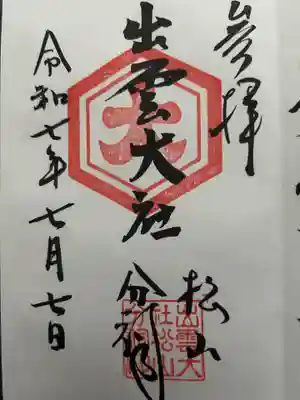 参拝
出雲大社
松山
分祠
令和七年七月七日
大
出雲大
社松山
分祠印